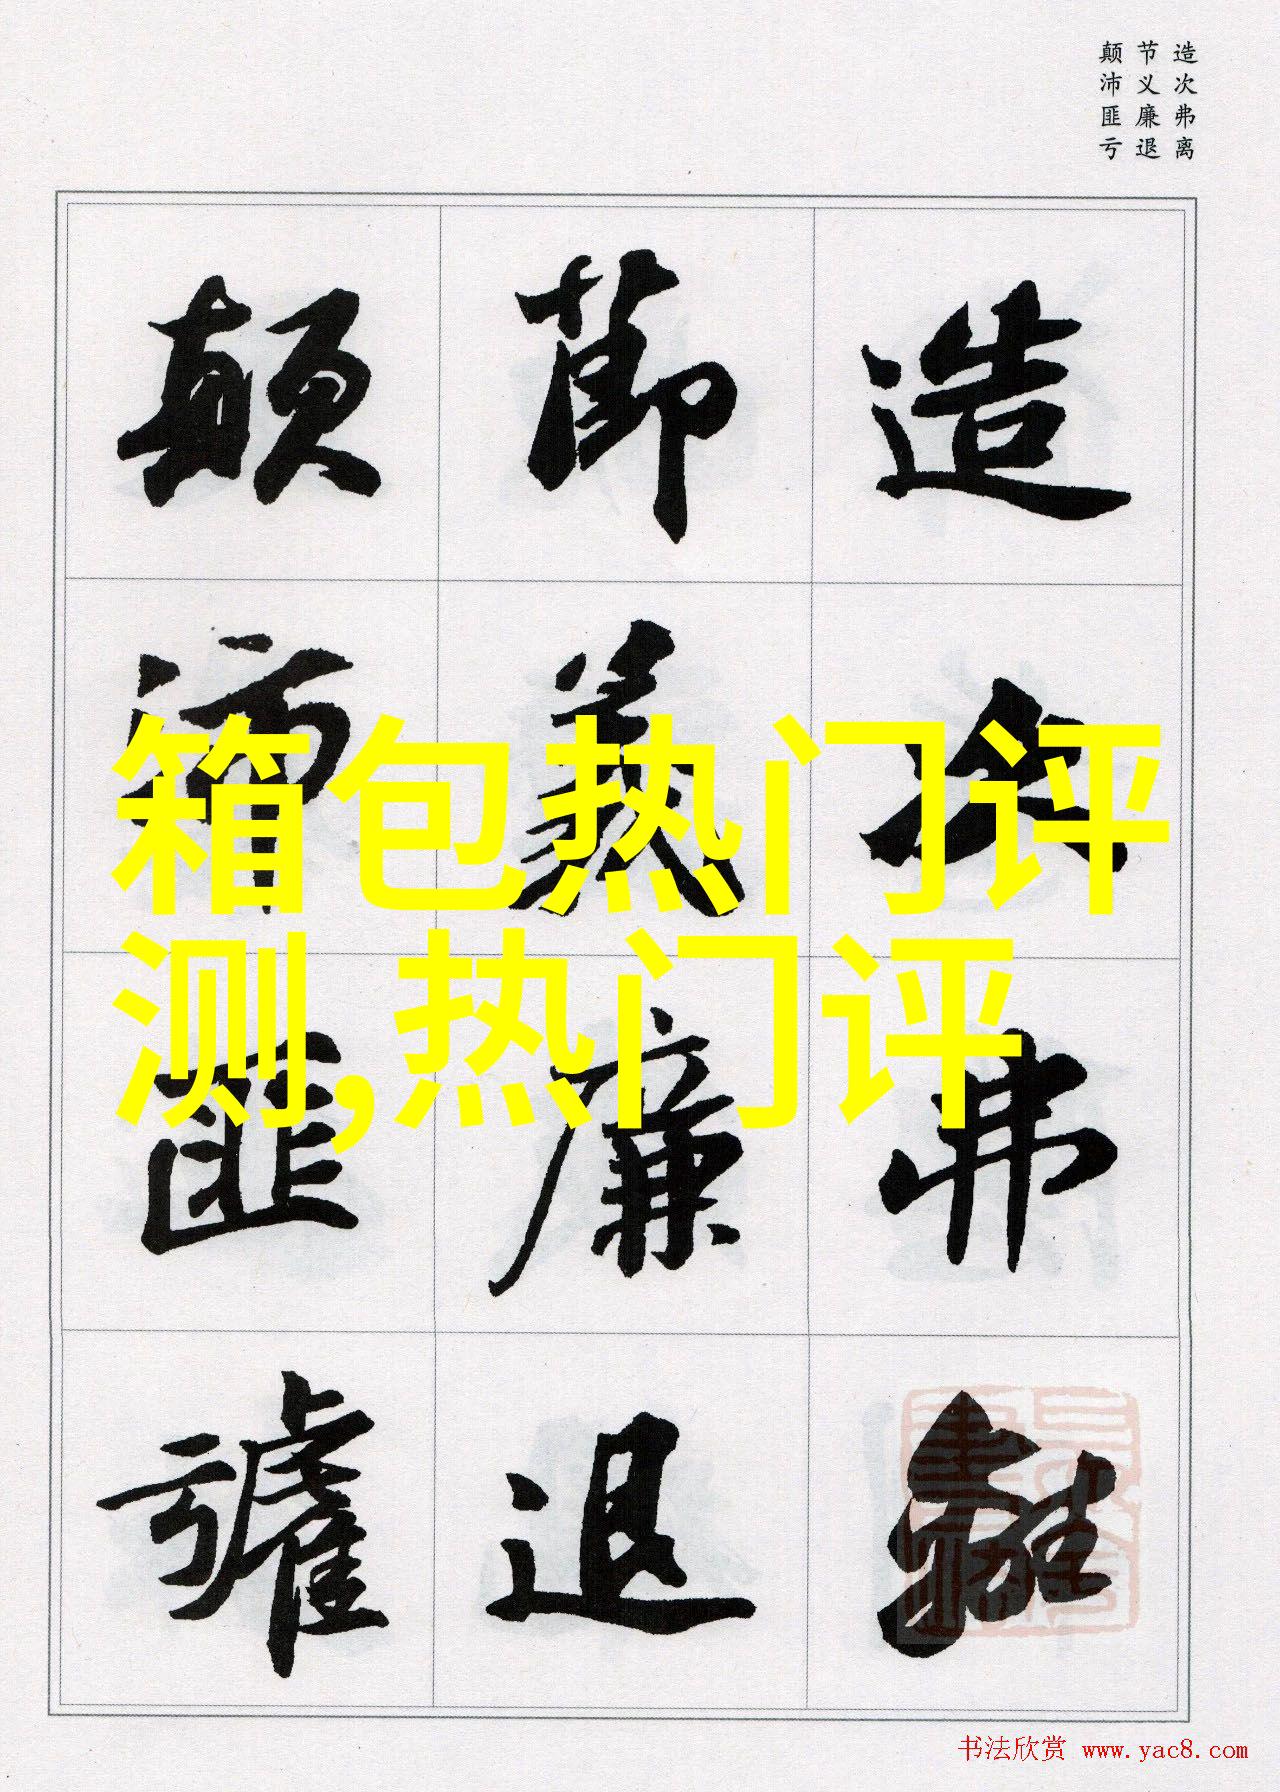 造次弗离
节义廉退
颠沛匪亏
造次弗離
節義廉退
顛沛匪虧
箱包热门评
测,热门评
书法欣赏 www.yac8.com